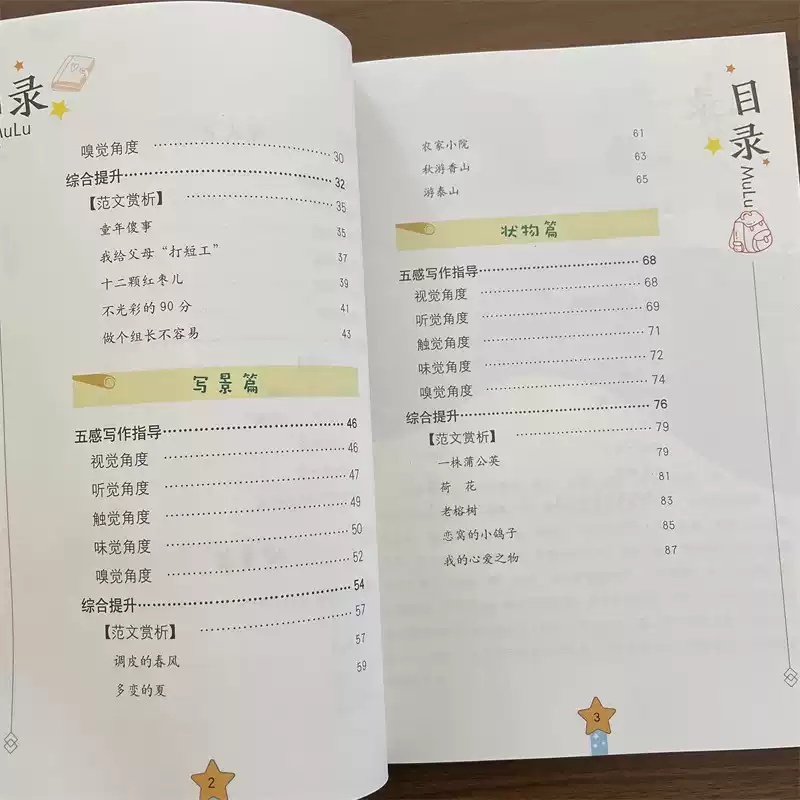 目录
MuLu
嗅觉角度 30
综合提升 32
【范文赏析】 35
童年傻事 35
我给父母“打短工” 37
十二颗红枣儿 39
不光彩的90分 41
做个组长不容易 43
写景篇
五感写作指导 46
视觉角度 46
听觉角度 47
触觉角度 49
味觉角度 50
嗅觉角度 52
综合提升 54
【范文赏析】 57
调皮的春风 57
多变的夏 59
2
目录
MuLu
农家小院 61
秋游香山 63
游泰山 65
状物篇
五感写作指导 68
视觉角度 68
听觉角度 69
触觉角度 71
味觉角度 72
嗅觉角度 74
综合提升 76
【范文赏析】 79
一株蒲公英 79
荷花 81
老榕树 83
恋窝的小鸽子 85
我的心爱之物 87
3